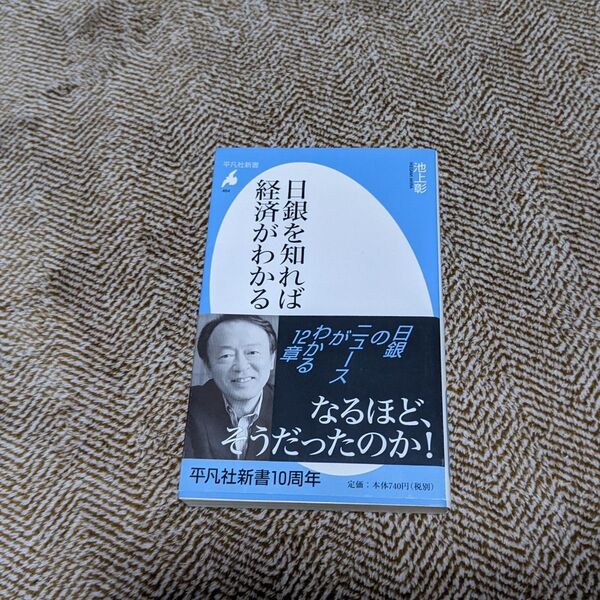 平凡社新書
464
池上彰
日銀を知れば
経済がわかる
日銀
の
ニュース
が
わかる
12章
なるほど、
そうだったのか!
平凡社新書10周年
定価:本体740円(税別)